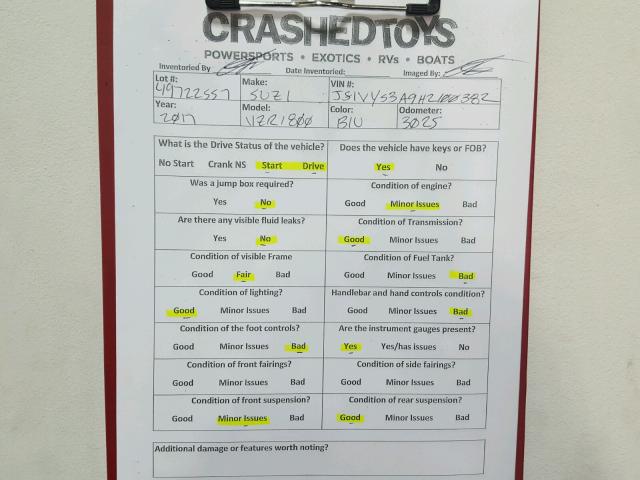 CRASHEDTOYS
POWERSPORTS • EXOTICS • RVs • BOATS
Inventoried By Date Inventoried: Imaged By:
Lot #: Make: VIN #:
49722557 SUZI JS1VY53A9H2100382
Year: Model: Color: Odometer:
2017 VZR1800 BlU 3025
What is the Drive Status of the vehicle? Does the vehicle have keys or FOB?
No Start Crank NS Start Drive Yes No
Was a jump box required? Condition of engine?
Yes No Good Minor Issues Bad
Are there any visible fluid leaks? Condition of Transmission?
Yes No Good Minor Issues Bad
Condition of visible Frame Condition of Fuel Tank?
Good Fair Bad Good Minor Issues Bad
Condition of lighting? Handlebar and hand controls condition?
Good Minor Issues Bad Good Minor Issues Bad
Condition of the foot controls? Are the instrument gauges present?
Good Minor Issues Bad Yes Yes/has issues No
Condition of front fairings? Condition of side fairings?
Good Minor Issues Bad Good Minor Issues Bad
Condition of front suspension? Condition of rear suspension?
Good Minor Issues Bad Good Minor Issues Bad
Additional damage or features worth noting?